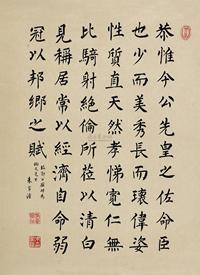 恭惟令公先皇之佐命臣
也少而美秀長而瓌偉姿
性質直天然孝悌寬仁無
比騎射絕倫所莅以清白
見稱居常以經濟自命弱
冠以邦鄉之賦